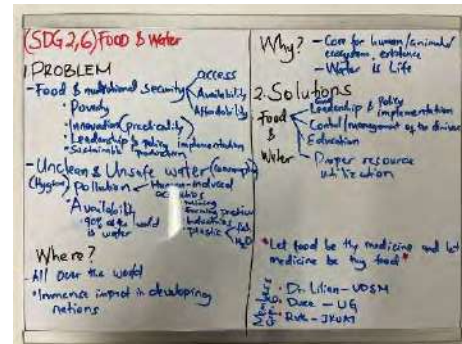 (SDG 2,6) FOOD & Water
1. PROBLEM
- Food & nutritional security
access
Availability
Affordability
• Poverty
• Innovation (practicality)
• Leadership & policy implementation
• Sustainable production
- Unclean & Unsafe water (consumption)
(Hygiene) pollution - Human-Induced
activities
mining
farming practices
Industries
plastic
H2O
• Availability
• 90% of the world
is water
Where?
- All over the world
• Immense impact in developing
nations
Why? - Core for human/animal/
ecosystem existence
- Water is Life
2. Solutions
Food
&
Water
Leadership & Policy
implementation
Control/management of the drivers
Education
Proper resource
utilization
"Let food be thy medicine and let
medicine be thy food"
Members
• Dr. Lilian - UDSM
• - UG
• - JKUAT